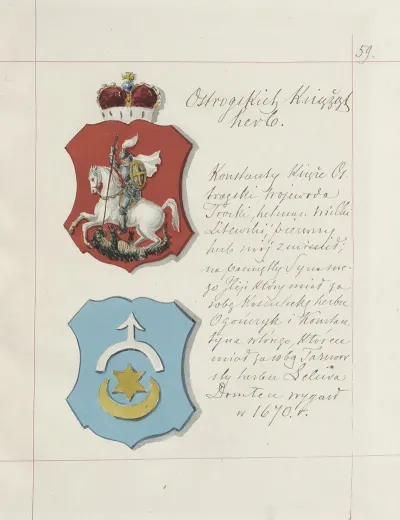 59.
Ostrogskich Książąt
herb.
Konstanty Książe Os
trogski Wojewoda
Trocki, hetman Wielki
Litewski, pierwszy
herb swój zmienił;
na pamiątkę Syna swe-
go Ilji który miał za
sobą Kościelecką herbu
Ogończyk i Konstan
tyna którego, któren
miał za sobą Tarnow
ską herbu Leliwa
Dom ten wygasł
w 1670. r.